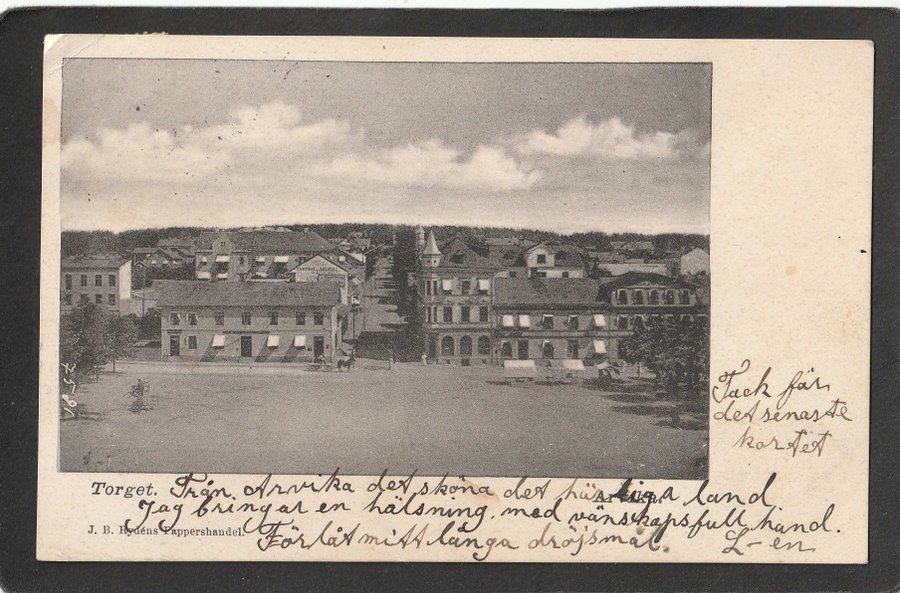 Tack fär
det senaste
kortet
Torget. Från Arvika det sköna det härliga land
Arvika.
Jag bringar en hälsning, med vänskapsfull hand.
J. B. Rydéns Pappershandel.
Förlåt mitt långa dröjsmål.
L-en